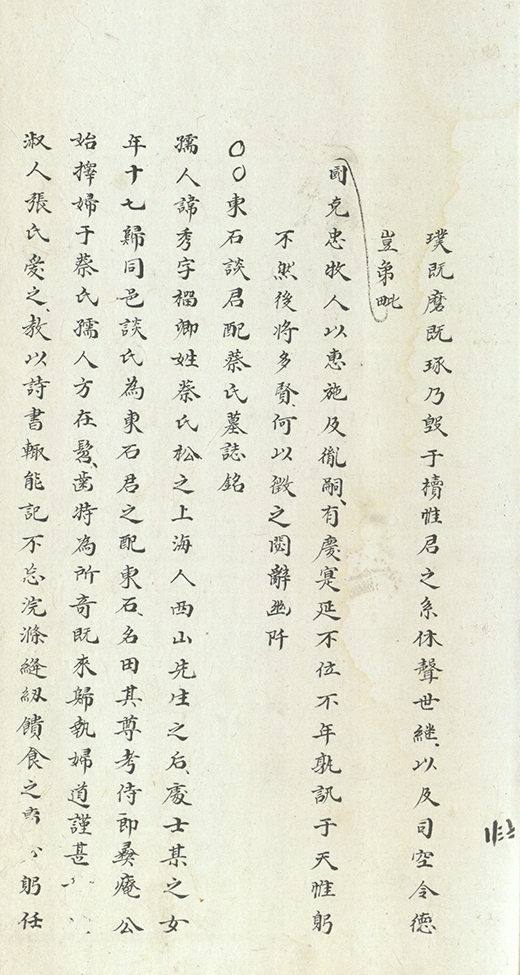 璞既磨既琢乃毀于櫝惟君之系休聲世繼以及司空令德
豈弟毗
同克忠牧人以惠施及胤嗣有慶寔延不位不年孰訊于天惟躬
不然後將多賢何以徵之閟辭幽阡
〇〇東石談君配蔡氏墓誌銘
孺人諱秀字榴卿姓蔡氏松之上海人西山先生之后處士某之女
年十七歸同邑談氏為東石君之配東石名田其尊考侍郎彝庵公
始擇婦于蔡氏孺人方在髫齒特為所奇既來歸執婦道謹甚
淑人張氏愛之教以詩書輒能記不忘浣滌縫紉饋食之 躬任